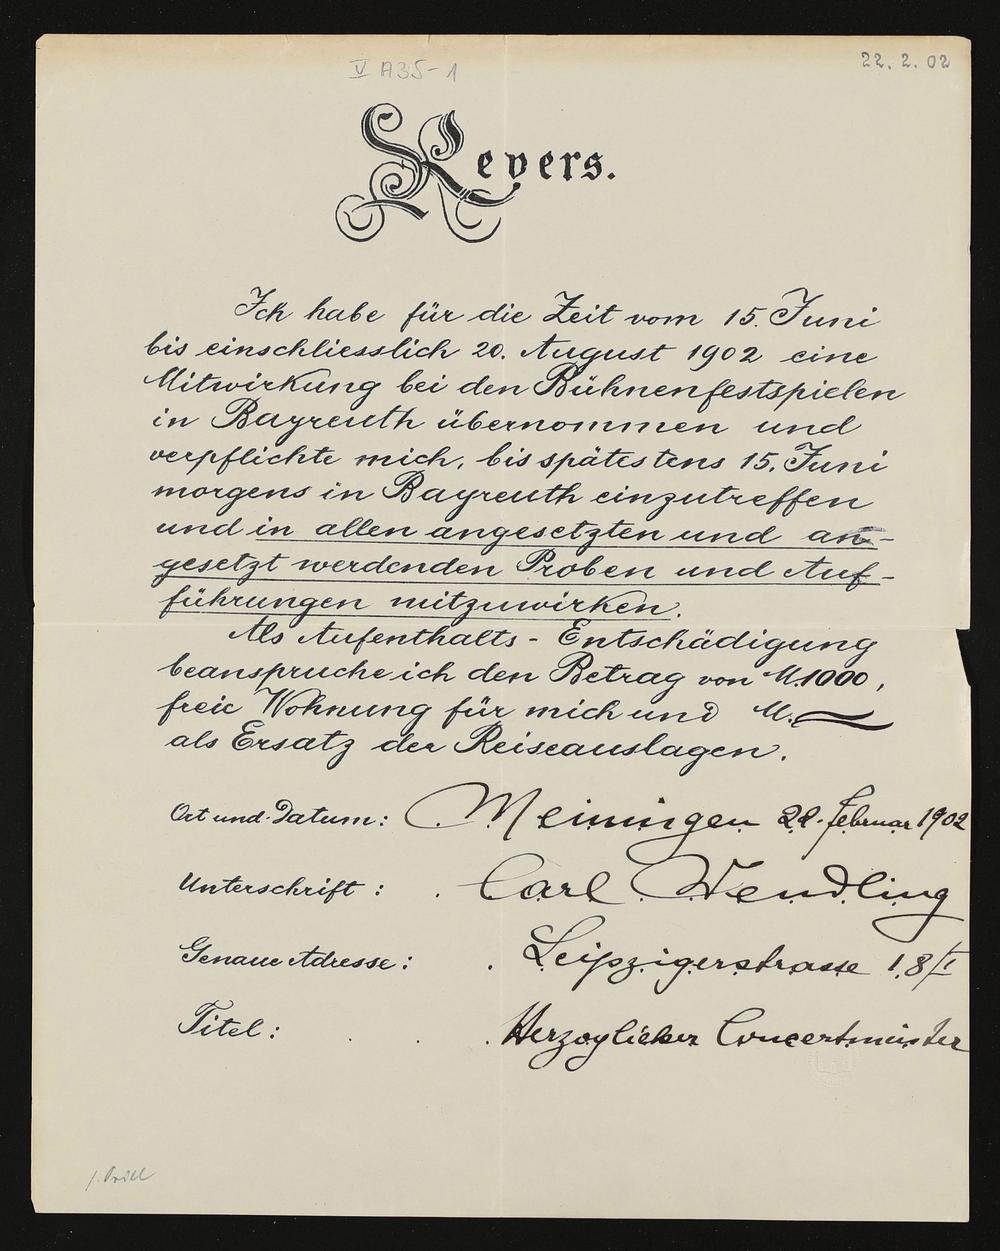 V A35-1
22. 2. 02
Revers.
Ich habe für die Zeit vom 15. Juni
bis einschliesslich 20. August 1902 eine
Mitwirkung bei den Bühnenfestspielen
in Bayreuth übernommen und
verpflichte mich, bis spätestens 15. Juni
morgens in Bayreuth einzutreffen
und in allen angesetzten und an-
gesetzt werdenden Proben und Auf-
führungen mitzuwirken.
Als Aufenthalts-Entschädigung
beanspruche ich den Betrag von M. 1000,
freie Wohnung für mich und M. —
als Ersatz der Reiseauslagen.
Ort und Datum: Meiningen 22. Februar 1902
Unterschrift: Carl Wendling
Genaue Adresse: Leipzigerstrasse 18/I
Titel: Herzoglicher Concertmeister